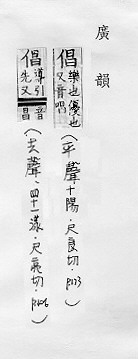 廣韻
倡 樂也優也
又音唱
(平聲、十陽、尺良切、p173)
倡 導引
先又
音昌
(去聲、四十一漾、尺亮切、p426)